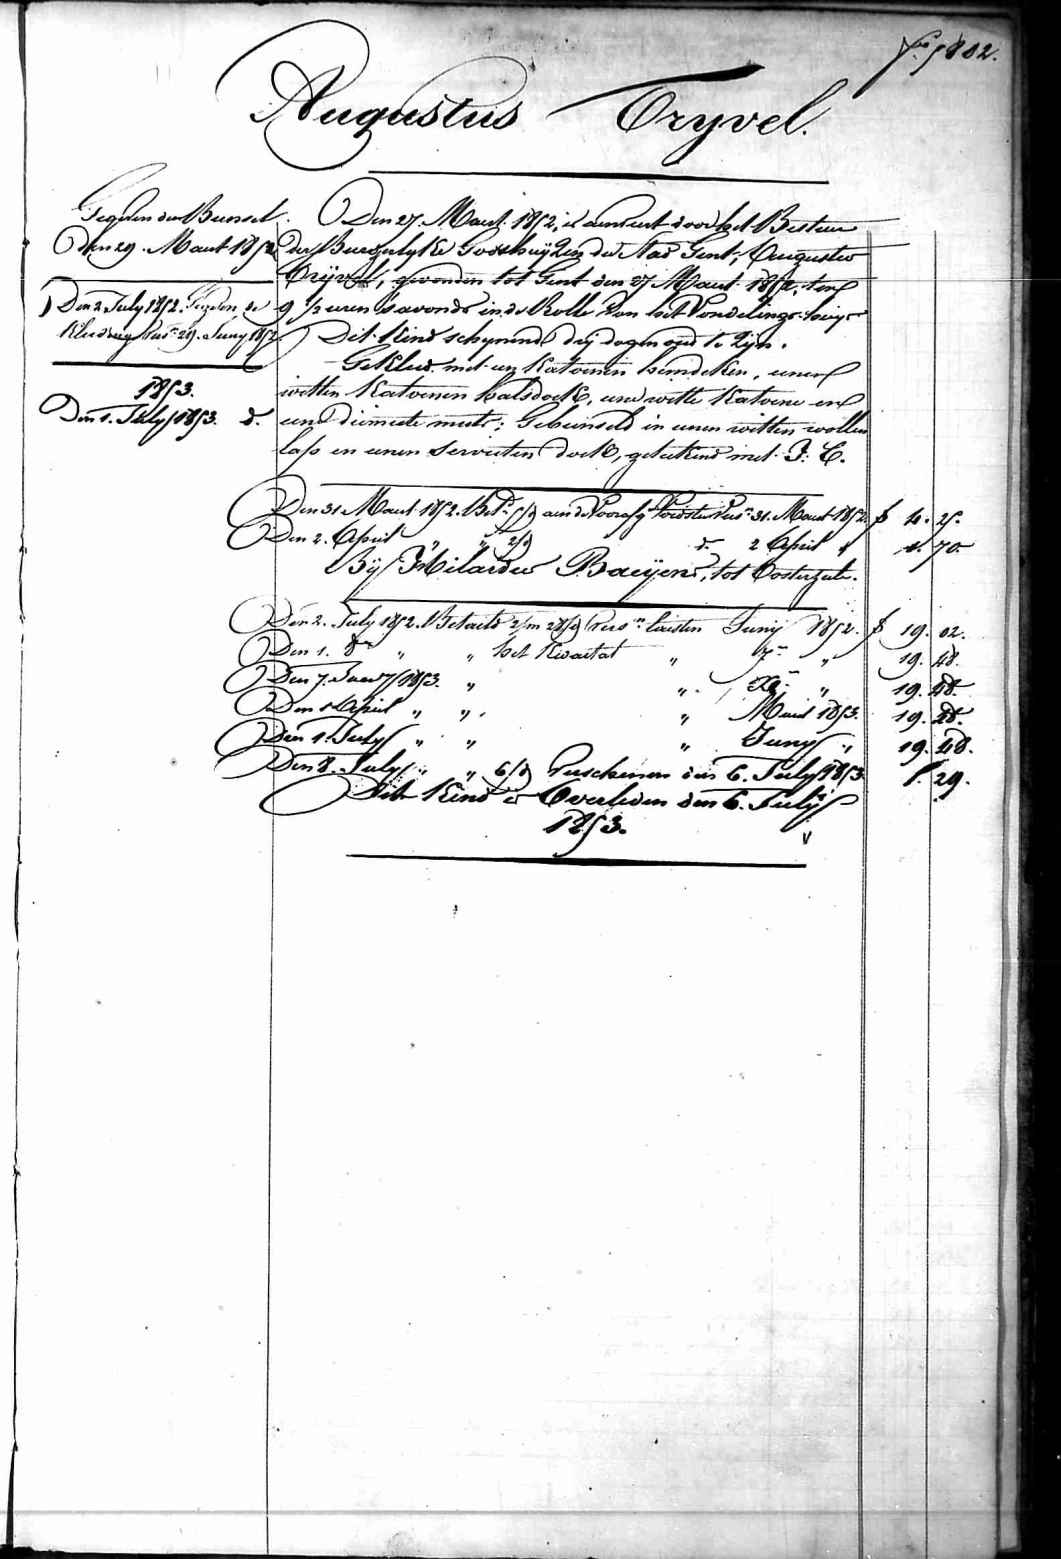 Augustus Tryvel.
Gegeven den Bunsel
den 29. Maart 1852
Den 2 July 1852. Gegeven de
Kleeding 29. Juny 1852
1853.
Den 1. July 1853. d.
Den 27. Maart 1852, is aenveert door het Bestuer
der Burgerlyke Godshuyzen der Stad Gent, Augustus
Trÿvel, gevonden tot Gent den 27 Maart 1852, ten
9 1/2 uren 's avonds in de Rolle van het Vondelings-huys
Dit Kind schynende dry dagen oud te zyn.
Gekleed met een Katoenen hemdeken, eenen
witten Katoenen halsdoek, eene witte Katoene en
eene diemete muts; Gebunseld in eenen witten wollen
lap en eenen Servieten doek, geteekend met J: C.
Den 31 Maart 1852. Bet. aen de Voorsz. Voedster 31. Maart 1852. 4. 25.
Den 2. April " " 2/3 d. 2 April " 1. 70.
Bÿ Hilarder Baeÿens, tot Oosterzele.
Den 2. July 1852. Betaeld laesten Juny 1852. 19. 02.
Den 1. 8 " " het Kwartael " 7 " 19. 48.
Den 7. Janv 1853. " " " 19. 48.
Den 1 April " " " Maert 1853. 19. 48.
Den 1. July " " " Juny " 19. 48.
Den 8. July " " 6/3 Verschenen den 6. July 1853 1. 29.
Dit Kind is Overleden den 6. July
1853.